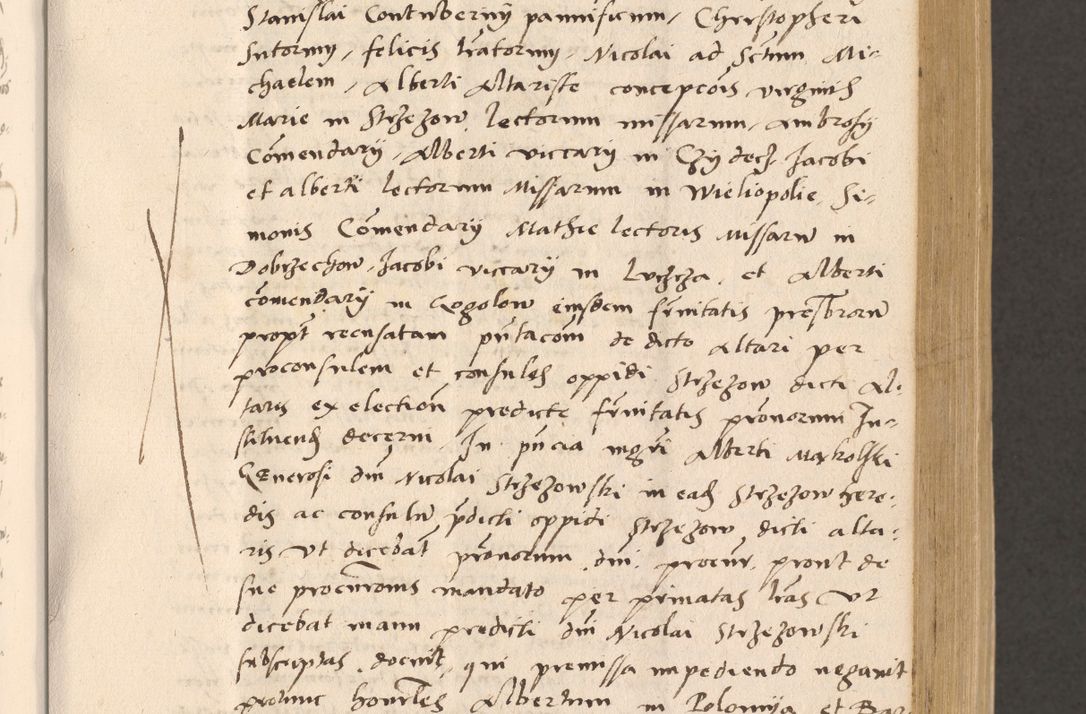 Stanislai Contuberny pannificum, Christopheri
Sutormy, felicis lratormy, Nicolai ad Sctum Mi-
chaelem, Alberti Altariste concepcois virginis
Marie in Strzezow, lectorum missarum, Ambrosy
Comendarij, Alberti viccarij in Czydecz, Jacobi
et alberti lectorum Missarum in Wieliopolie, Si-
monis Comendarij Mathie lectoris missarum in
Dobrzechow, Jacobi viccarij in Luczcza, et Alberti
comendarij in Gogolow eiusdem frnitatis presbrorum
propt recusatam pntacom de dicto altari per
proconsulem et consules oppidi Strzezow dicti Al-
taris ex election predicte frnitatis pronorum In-
stituend decerni. In pncia mgri Alberti Markolski
Generosi dni Nicolai Strzezowski in ead Strzezow here-
dis ac consulum pdicti oppidi Strzezow dicti alta-
ris ut dicebat pronorum dni procur, prout de
sue procuronis mandato per primatas lras ut
dicebat manu predicti dni Nicolai Strzezowski
subscriptas docuit, qui premissa impediendo negavit
protunc honrles Albertum in Polomya et Bar